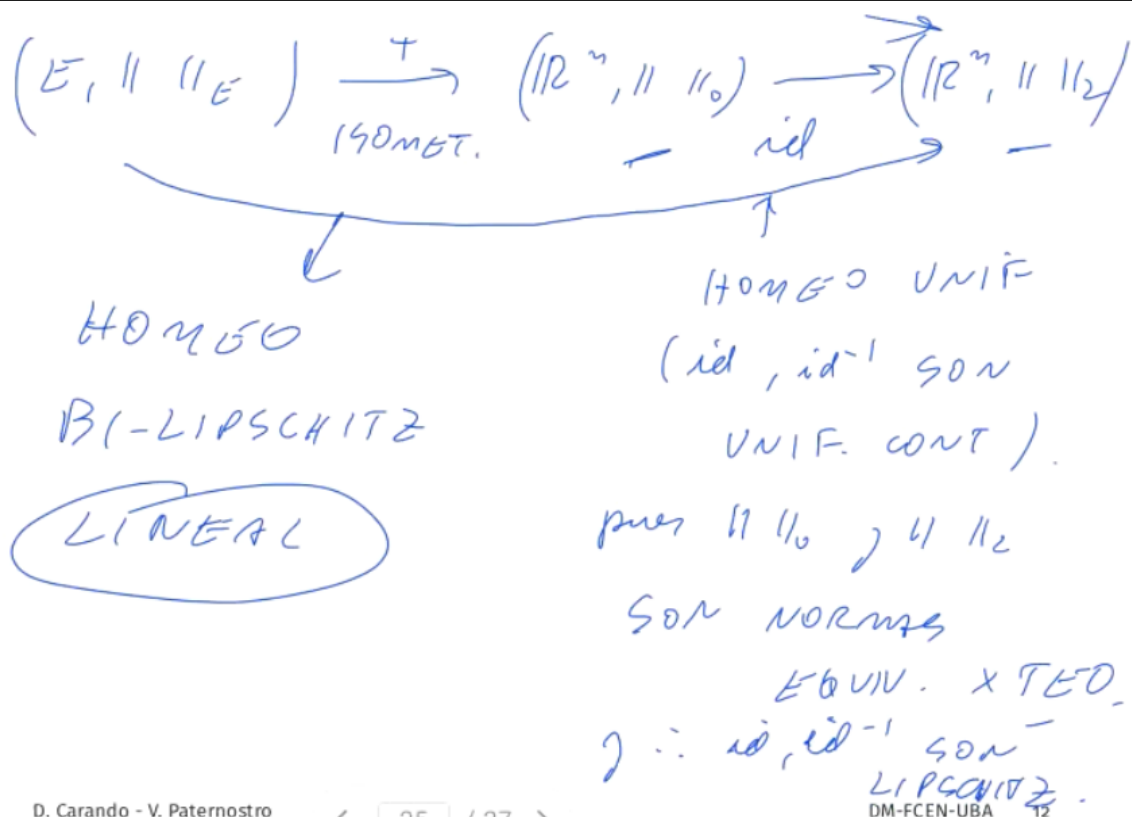 (E, || ||_E) T→ ISOMET. (ℝⁿ, || ||₀) → id (ℝⁿ, || ||₂)
HOMEO
BI-LIPSCHITZ
LINEAL
HOMEO UNIF
(id, id⁻¹ SON
UNIF. CONT).
pues || ||₀ y || ||₂
SON NORMAS
EQUIV. X TEO.
y ∴ id, id⁻¹ SON
LIPSCHITZ.
D. Carando - V. Paternostro
25 / 27
DM-FCEN-UBA
12